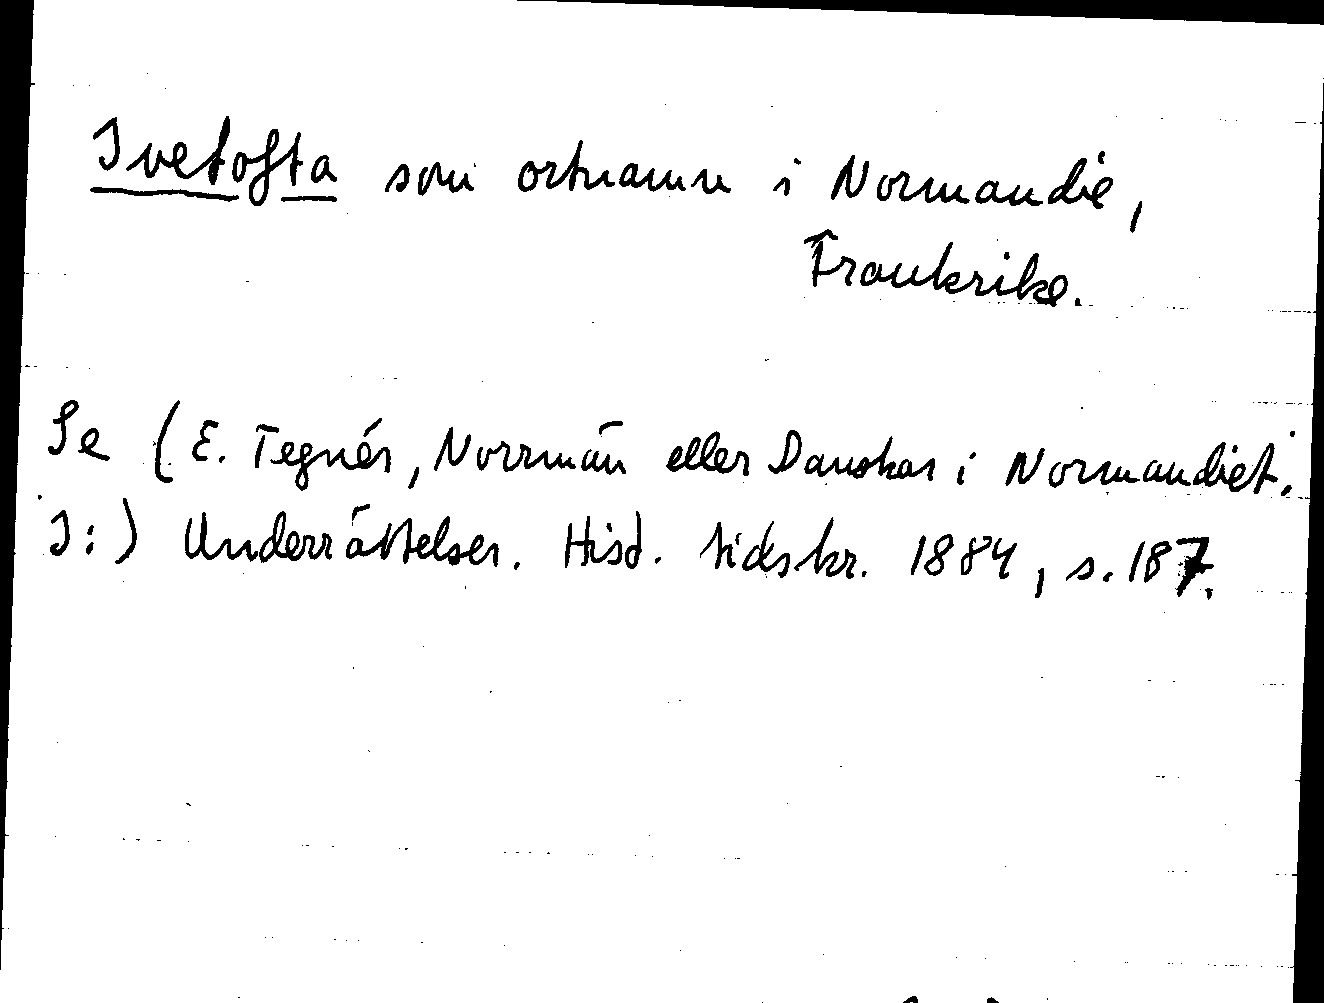 Ivetofta som ortnamn i Normandie,
Frankrike.
Se (E. Tegnér, Norrmän eller Danskar i Normandiet.
I:) Underrättelser. Hist. tidskr. 1884, s. 187.